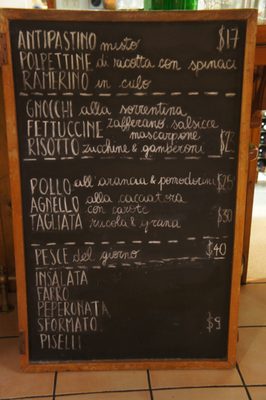 ANTIPASTINO misto $17
POLPETTINE di ricotta con spinaci
RAMERINO in culo
GNOCCHI alla sorrentina
FETTUCCINE zafferano salsicce
mascarpone
RISOTTO zucchine & gamberoni
POLLO all'arancia & pomodorini $25
AGNELLO alla cacciatora
con carote
TAGLIATA rucola & grana $30
PESCE del giorno $40
INSALATA
FARRO
PEPERONATA
SFORMATO $9
PISELLI